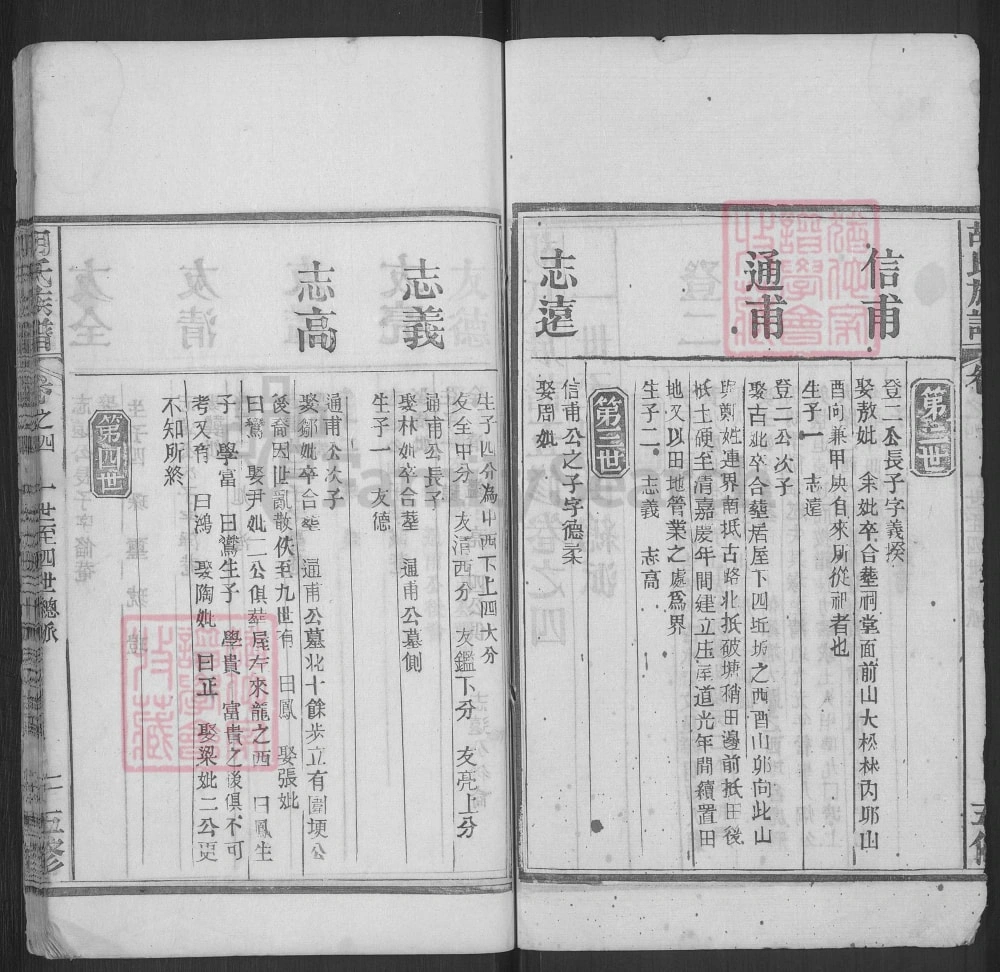 胡氏族譜
五修
第二世
信甫
登二公長子字義揆
娶敖妣 余妣卒合塟祠堂面前山大松林內夘山
酉向兼甲庚自來所從祀者也
生子一 志遠
通甫
登二公次子
娶古妣卒合塟居屋下四坵塝之西酉山夘向此山
與鄭姓連界南抵古路北抵破塘稍田邊前抵田後
抵土硬至清嘉慶年間建立庄屋道光年間續置田
地又以田地管業之處為界
生子二 志義 志高
第三世
志遠
信甫公之子字德柔
娶周妣
生子四分為甲西下上四大分
友全甲分 友清西分 友鑑下分 友亮上分
志義
通甫公長子
娶林妣卒合塟 通甫公墓側
生子一 友德
志高
通甫公次子
娶鄒妣卒合塟 通甫公墓北十餘步立有圍埂公
後裔因世亂散佚至九世有 曰鳳 娶張妣
曰鸞 娶尹妣二公俱塟屋左來龍之西 曰鳳生
子 學富 曰鸞生子 學貴 富貴之後俱不可
考又有 曰鴻 娶陶妣 曰正 娶梁妣二公更
不知所終
第四世
胡氏族譜
卷之四 一世至四世總派
二
五修